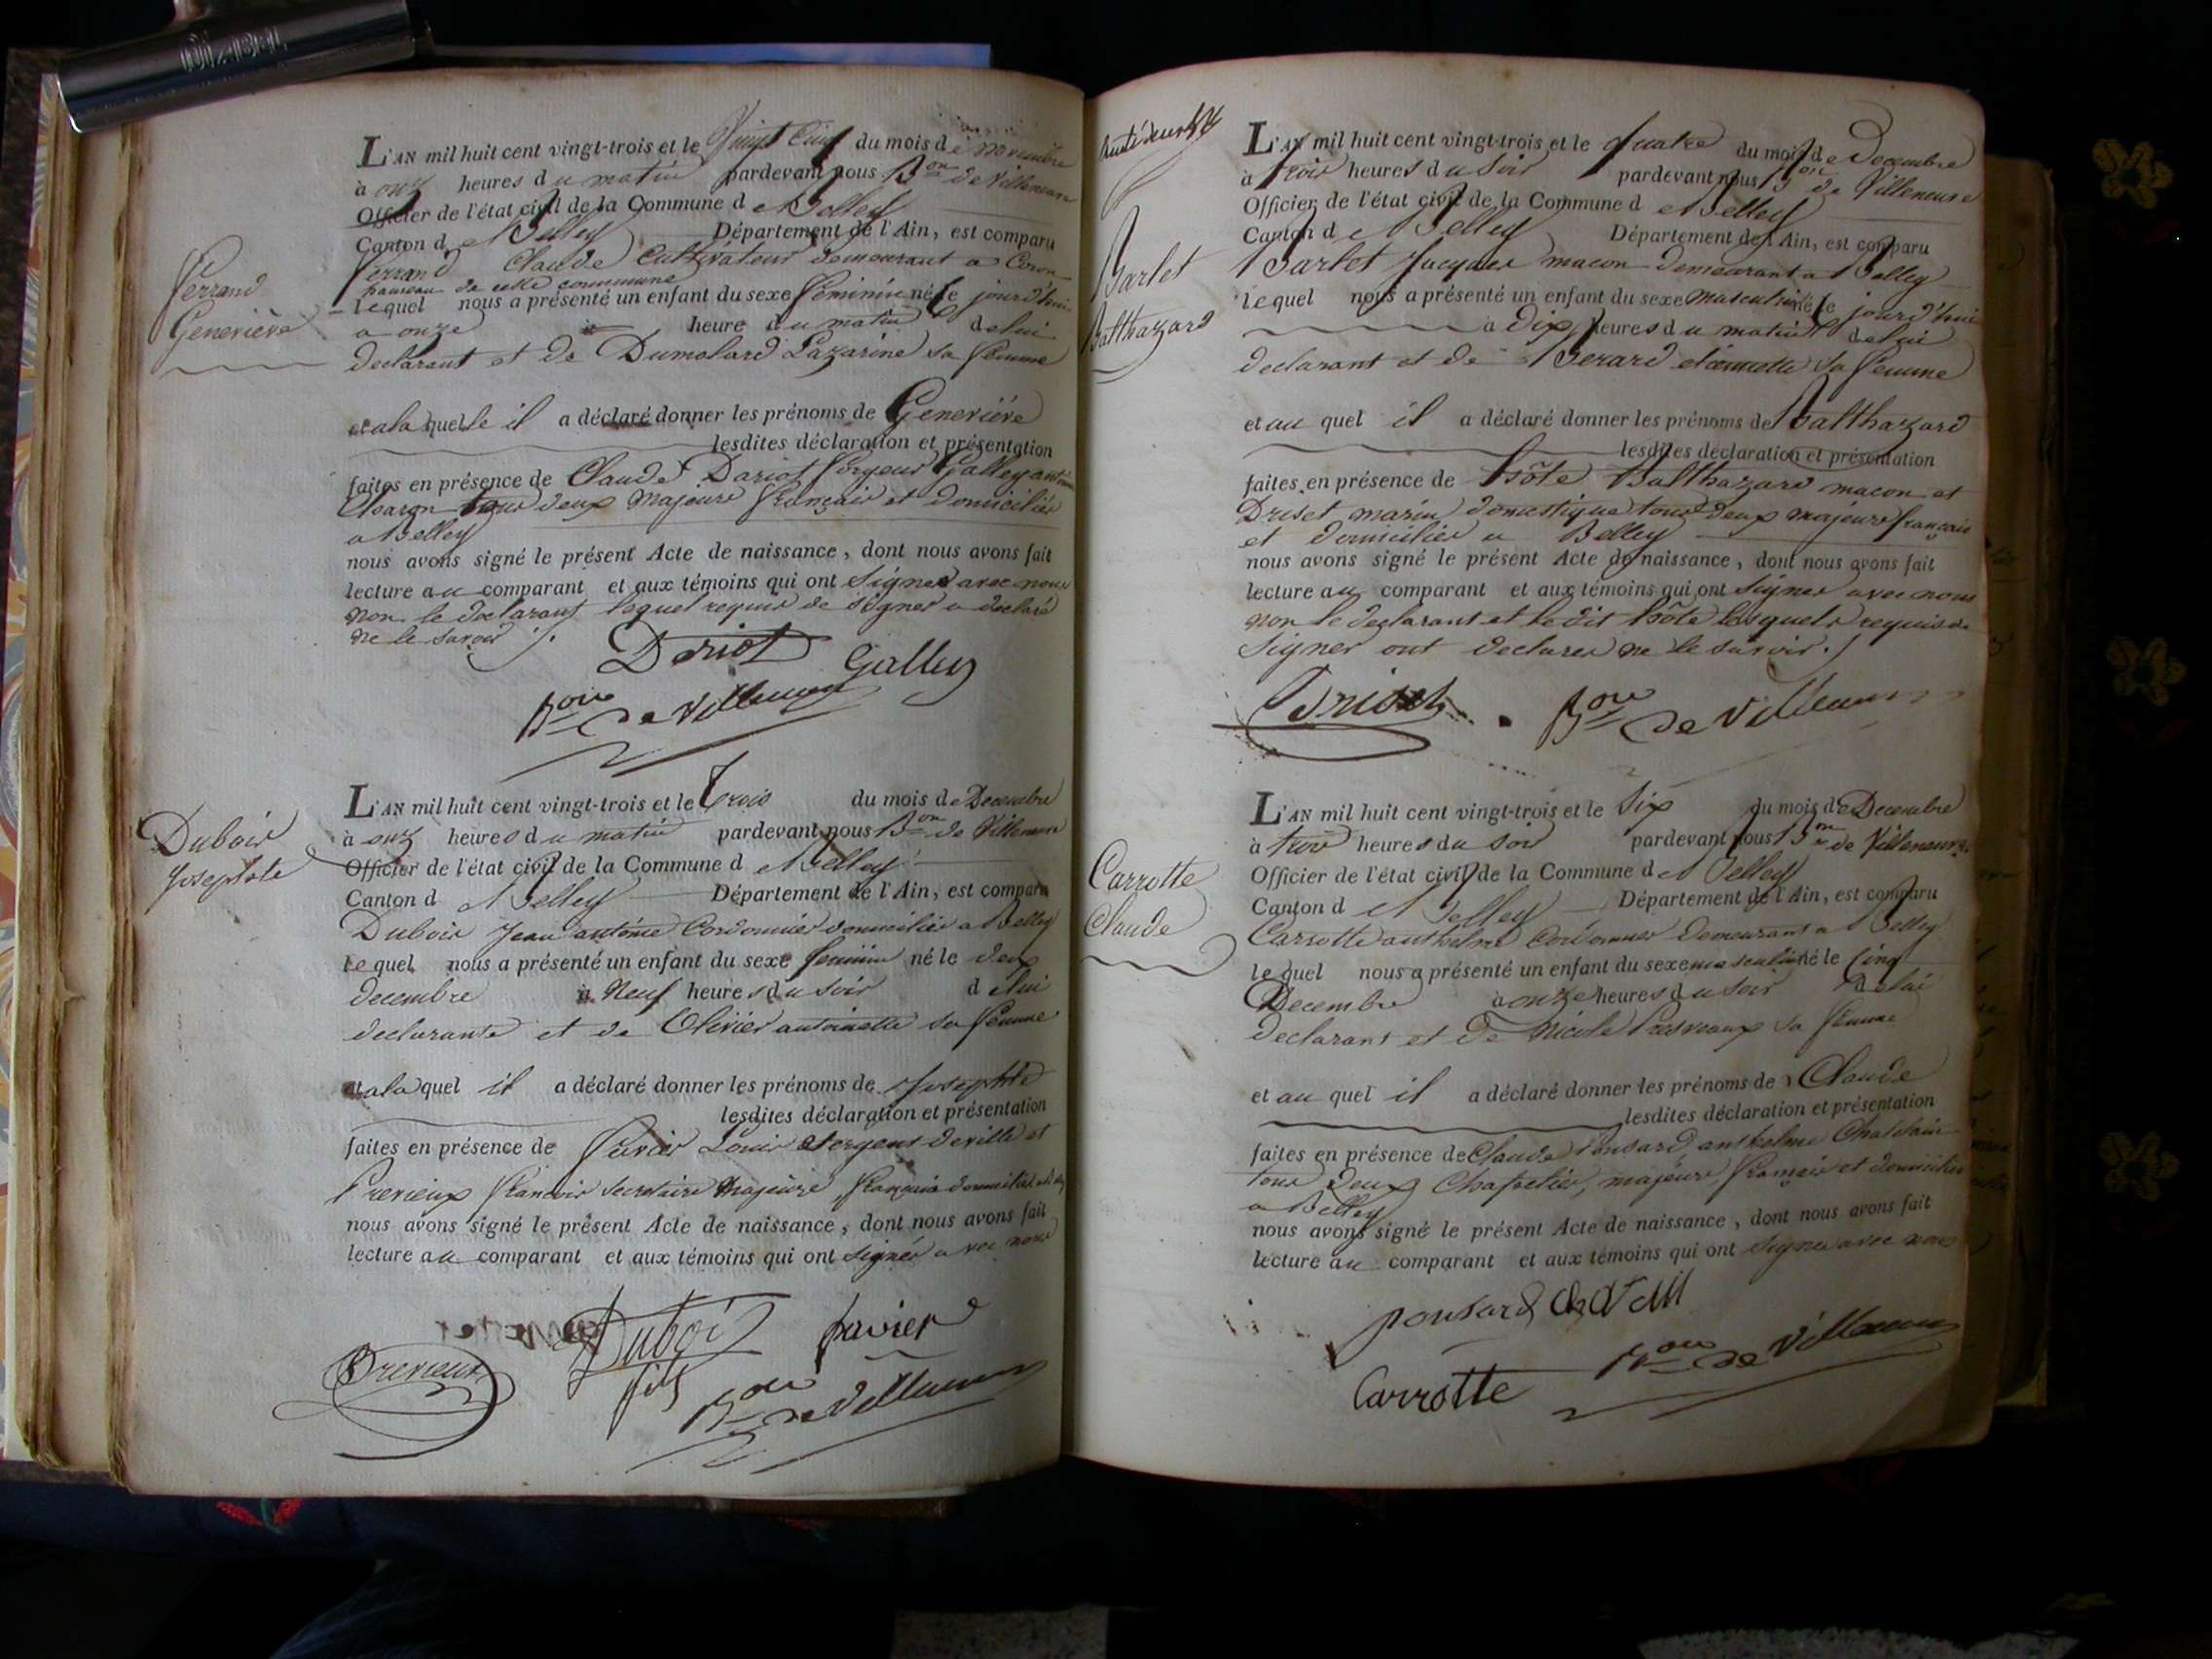 DIABEL
Ferrand
Geneviève
L'AN mil huit cent vingt-trois et le Vingt Cinq du mois de novembre
à onze heures du matin pardevant nous Bon de Villeneuve
Officier de l'état civil de la Commune de Belley
Canton de Belley Département de l'Ain, est comparu
Ferrand Claude Cultivateur demeurant a Coron
hameau de cette commune
lequel nous a présenté un enfant du sexe féminin né le jourd'hui
a onze heure du matin de lui
declarant et de Dumolard Lazarine sa femme
et a la quelle il a déclaré donner les prénoms de Geneviève
lesdites déclaration et présentation
faites en présence de Claude Dariot forgeur Galley
tous deux majeurs français et domiciliés
a Belley
nous avons signé le présent Acte de naissance, dont nous avons fait
lecture au comparant et aux témoins qui ont signer avec nous
non le declarant lequel requis de signer a declaré
ne le savoir
Dariot Galley
Bon de Villeneuve
Dubois
Josephte
L'AN mil huit cent vingt-trois et le trois du mois de Decembre
à onze heures du matin pardevant nous Bon de Villeneuve
Officier de l'état civil de la Commune de Belley
Canton de Belley Département de l'Ain, est comparu
Dubois Jean antoine Cordonnier domicilier a Belley
le quel nous a présenté un enfant du sexe feminin né le deux
decembre à neuf heures du soir de lui
declarante et de Olivier antoinette sa femme
et a la quel il a déclaré donner les prénoms de Josephte
lesdites déclaration et présentation
faites en présence de Favier Louis sergent de ville et
Prerieux francois secretaire majeurs français
nous avons signé le présent Acte de naissance, dont nous avons fait
lecture au comparant et aux témoins qui ont signér avec nous
Dubois fils favier
Prerieux
Bon de Villeneuve
Barlet
Balthazard
L'AN mil huit cent vingt-trois et le quatre du mois de Decembre
à trois heures du soir pardevant nous Bon de Villeneuve
Officier de l'état civil de la Commune de Belley
Canton de Belley Département de l'Ain, est comparu
Barlet Jacques macon demeurant a Belley
lequel nous a présenté un enfant du sexe masculin né le jourd'hui
à dix heures du matin de lui
declarant et de Berard sa femme
et au quel il a déclaré donner les prénoms de Balthazard
lesdites déclaration et présentation
faites en présence de hôte Balthazard macon et
Driset marin domestique tous deux majeurs français
et domicilier a Belley
nous avons signé le présent Acte de naissance, dont nous avons fait
lecture au comparant et aux témoins qui ont signer avec nous
non le declarant et le dit hôte lesquels requis de
signer ont declarer ne le savoir.
Driset Bon de Villeneuve
Carrotte
Claude
L'AN mil huit cent vingt-trois et le six du mois de Decembre
à trois heures du soir pardevant nous Bon de Villeneuve
Officier de l'état civil de la Commune de Belley
Canton de Belley Département de l'Ain, est comparu
Carrotte anthelme Cordonnier demeurant a Belley
le quel nous a présenté un enfant du sexe masculin né le cinq
Decembre à onze heures du soir de lui
declarant et de Nicole sa femme
et au quel il a déclaré donner les prénoms de Claude
lesdites déclaration et présentation
faites en présence de Claude Ponsard, anthelme
tous deux Chapelier, majeurs, français et domicilier
a Belley
nous avons signé le présent Acte de naissance, dont nous avons fait
lecture au comparant et aux témoins qui ont signer avec nous
ponsard
Bon de Villeneuve
Carrotte